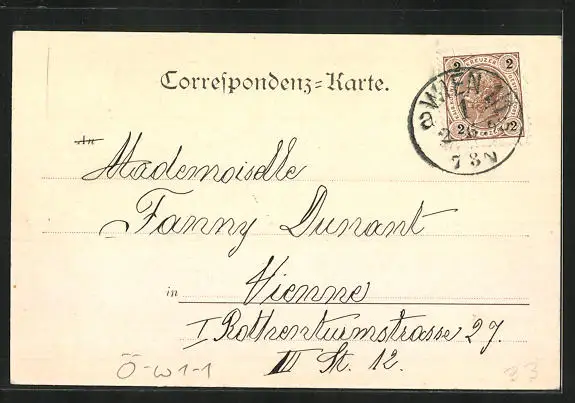 Correspondenz=Karte.
2 KREUZER 2
2 2
WIEN
7 3N
An
Mademoiselle
Fanny Dunant
in Vienne
I Rothenturmstrasse 27.
III St. 12.
Ö-W1-1
23